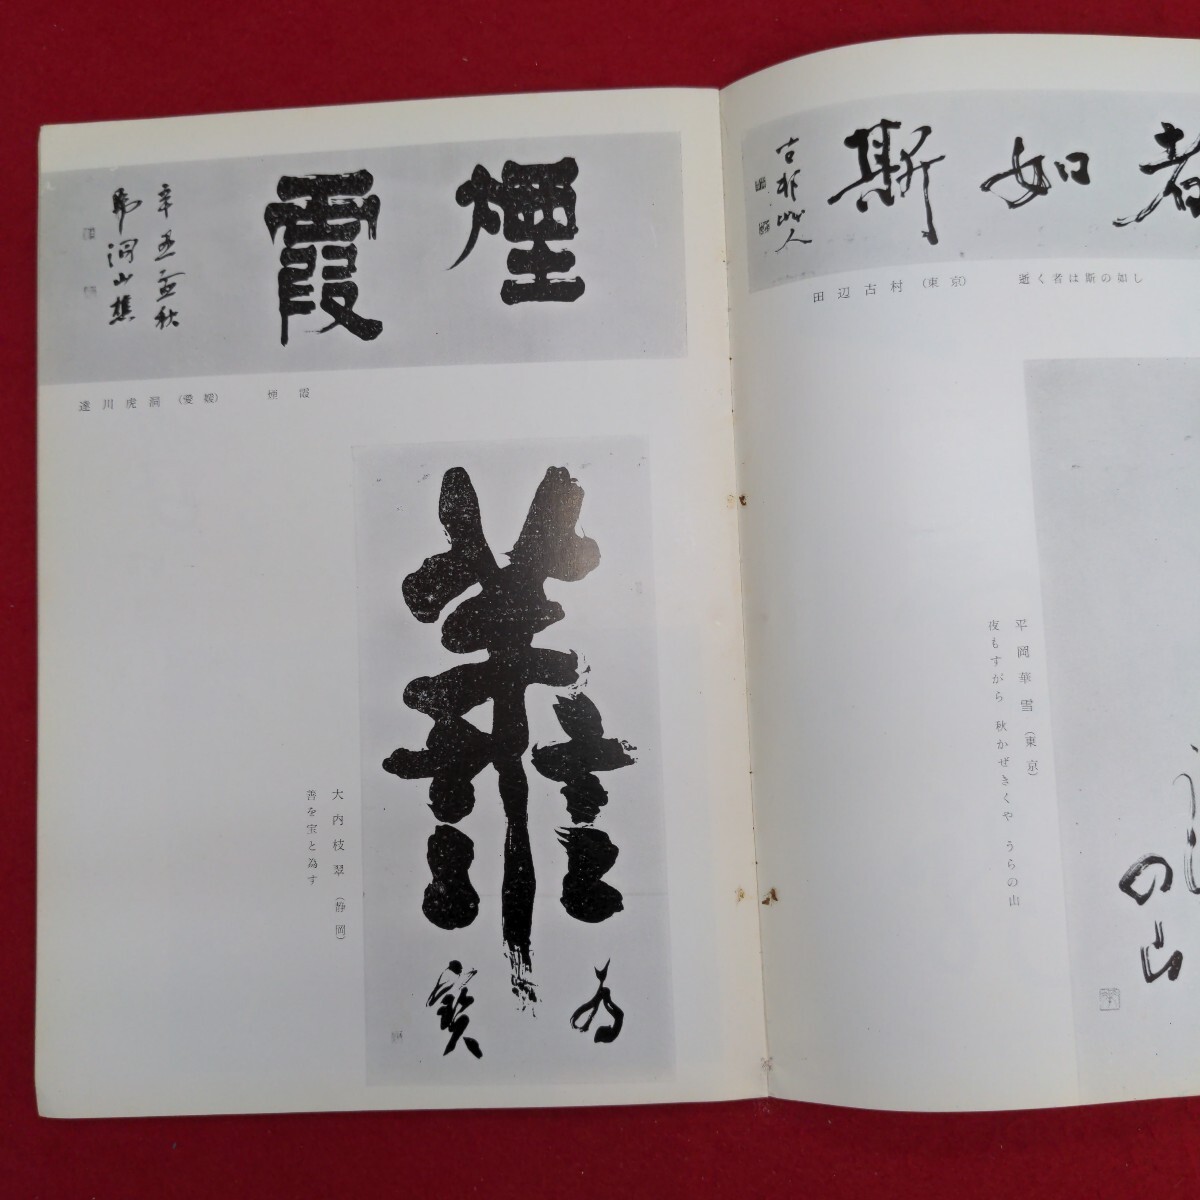 煙霞
辛丑孟秋
虎洞山樵
逢川虎洞（愛媛）　煙霞
善
為寶
大内枝翠（静岡）
善を宝と為す
者如斯
古邨山人
田辺古村（東京）　逝く者は斯の如し
平岡華雪（東京）
夜もすがら 秋かぜきくや うらの山
の山